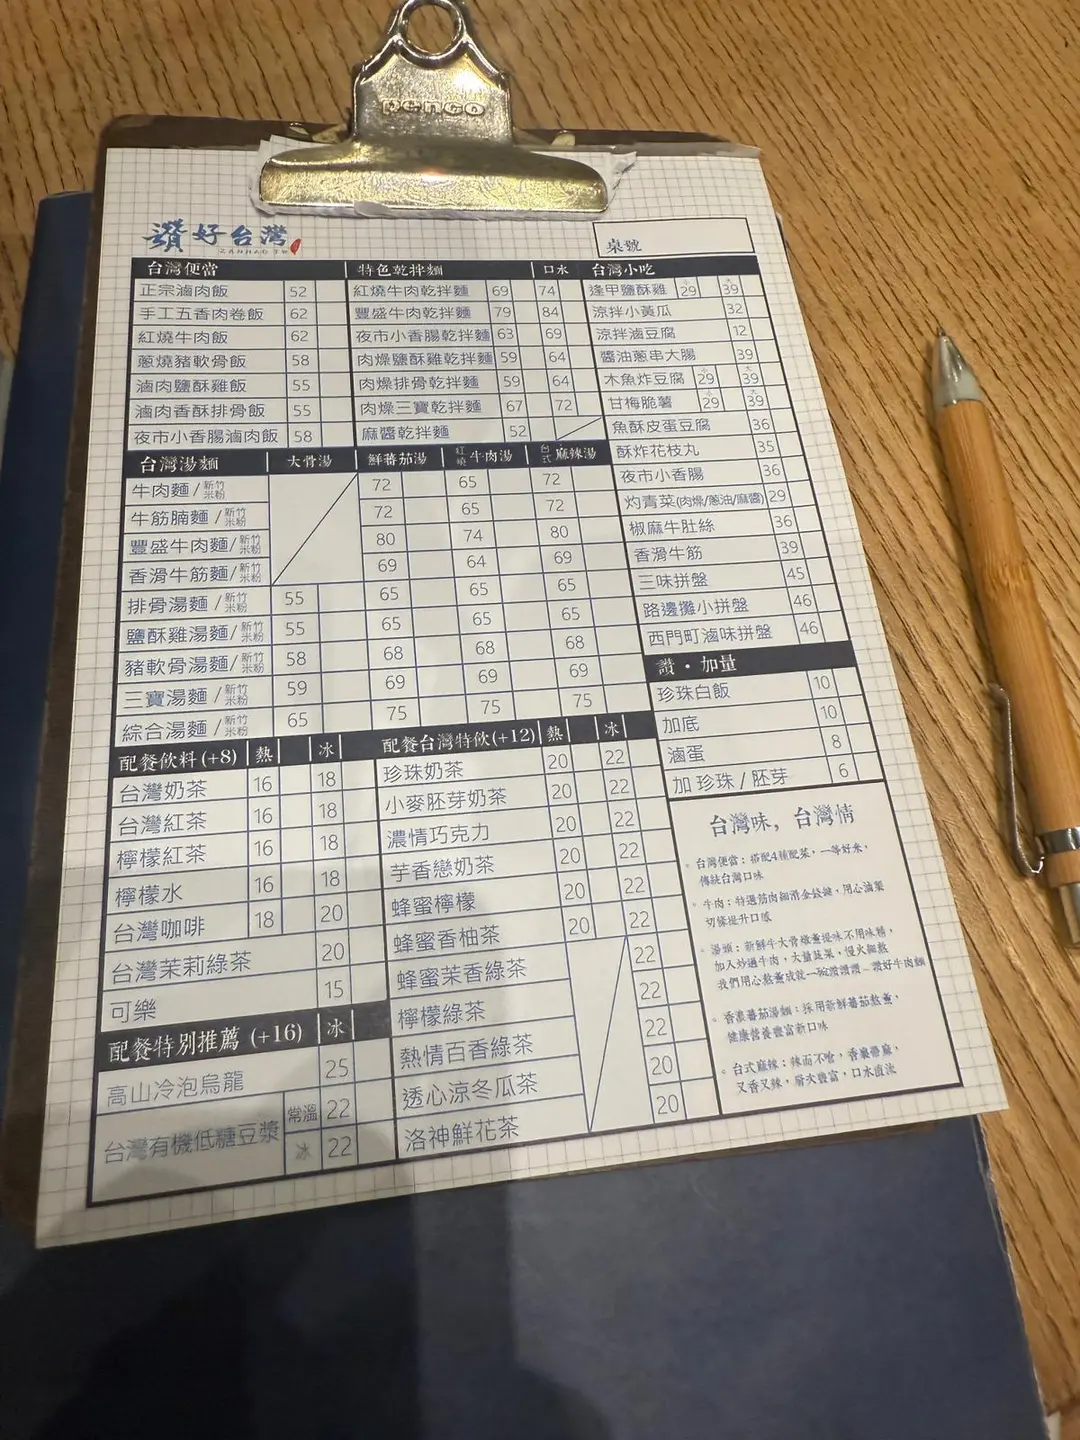 penco
讚好台灣
桌號
台灣便當
正宗滷肉飯 52
手工五香肉卷飯 62
紅燒牛肉飯 62
蔥燒豬軟骨飯 58
滷肉鹽酥雞飯 55
滷肉香酥排骨飯 55
夜市小香腸滷肉飯 58
特色乾拌麵 口水
紅燒牛肉乾拌麵 69 74
豐盛牛肉乾拌麵 79 84
夜市小香腸乾拌麵 63 69
肉燥鹽酥雞乾拌麵 59 64
肉燥排骨乾拌麵 59 64
肉燥三寶乾拌麵 67 72
麻醬乾拌麵 52
台灣小吃
逢甲鹽酥雞 小29 大39
涼拌小黃瓜 32
涼拌滷豆腐 12
醬油蔥串大腸 39
木魚炸豆腐 小29 大39
甘梅脆薯 小29 大39
魚酥皮蛋豆腐 36
酥炸花枝丸 35
夜市小香腸 36
灼青菜(肉燥/蔥油/麻醬) 29
椒麻牛肚絲 36
香滑牛筋 39
三味拼盤 45
路邊攤小拼盤 46
西門町滷味拼盤 46
台灣湯麵 大骨湯 鮮蕃茄湯 紅燒牛肉湯 台式麻辣湯
牛肉麵/新竹米粉 72 65 72
牛筋腩麵/新竹米粉 72 65 72
豐盛牛肉麵/新竹米粉 80 74 80
香滑牛筋麵/新竹米粉 69 64 69
排骨湯麵/新竹米粉 55 65 65 65
鹽酥雞湯麵/新竹米粉 55 65 65 65
豬軟骨湯麵/新竹米粉 58 68 68 68
三寶湯麵/新竹米粉 59 69 69 69
綜合湯麵/新竹米粉 65 75 75 75
讚・加量
珍珠白飯 10
加底 10
滷蛋 8
加珍珠/胚芽 6
配餐飲料(+8) 熱 冰
台灣奶茶 16 18
台灣紅茶 16 18
檸檬紅茶 16 18
檸檬水 16 18
台灣咖啡 18 20
台灣茉莉綠茶 20
可樂 15
配餐特別推薦 (+16) 冰
高山冷泡烏龍 25
台灣有機低糖豆漿 常溫 22
冰 22
配餐台灣特飲(+12) 熱 冰
珍珠奶茶 20 22
小麥胚芽奶茶 20 22
濃情巧克力 20 22
芋香戀奶茶 20 22
蜂蜜檸檬 20 22
蜂蜜香柚茶 20 22
蜂蜜茉香綠茶 22
檸檬綠茶 22
熱情百香綠茶 22
透心涼冬瓜茶 20
洛神鮮花茶 20
台灣味，台灣情
。台灣便當：搭配4種配菜，一等好米，
傳統台灣口味
。牛肉：特選筋肉細滑金錢𦟌，用心滷製
切條提升口感
。湯頭：新鮮牛大骨燉熬提味不用味精，
加入炒過牛肉，大量蔬菜，慢火細熬
我們用心熬煮成就一碗讚讚讚~讚好牛肉麵
。香濃蕃茄湯麵：採用新鮮蕃茄熬煮，
健康營養豐富新口味
。台式麻辣：辣而不嗆，香氣帶麻，
又香又辣，層次豐富，口水直流